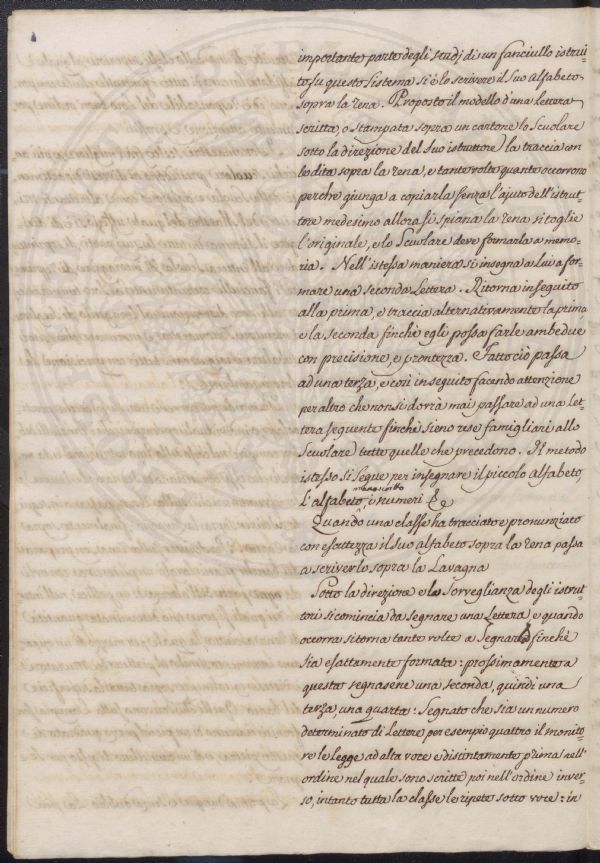 importante parte degli studj di un fanciullo istrui=
to su questo Sistema si è lo scrivere il suo alfabeto
sopra la rena. Proposto il modello d'una lettera
scritta, o stampata sopra un cartone lo Scuolare
sotto la direzione del suo istruttore la traccia con
le dita sopra la rena, e tante volte quante occorrono
perchè giunga a copiarla senza l'ajuto dell'istrut=
tore medesimo allora si spiana la rena si toglie
l'originale, e lo Scuolare deve formarla a memo=
ria. Nell'istessa maniera si insegna a lui a for=
mare una seconda Lettera. Ritorna in seguito
alla prima, e traccia alternativamente la prima
e la seconda finchè egli possa farle ambedue
con precisione, e prontezza. Fatto ciò passa
ad una terza, e così in seguito facendo attenzione
per altro che non si dovrà mai passare ad una let=
tera seguente finchè sieno rese famigliari allo
Scuolare tutte quelle che precedono. Il metodo
istesso si segue per insegnare il piccolo alfabeto,
manoscritto
L'alfabeto, i numeri &c
Quando una classe ha tracciato e pronunziato
con esattezza il suo alfabeto sopra la rena passa
a scriverlo sopra la Lavagna
Sotto la direzione e la Sorveglianza degli istrut=
tori si comincia da segnare una Lettera, e quando
occorra si torna tante volte a segnarla finchè
sia esattamente formata: prossimamente a
questa segnasene una seconda, quindi una
terza, una quarta: Segnato che sia un numero
determinato di Lettere, per esempio quattro il monito=
re le legge ad alta voce e distintamente prima nell'
ordine nel quale sono scritte poi nell'ordine inver=
so, intanto tutta la classe le ripete sotto voce: in